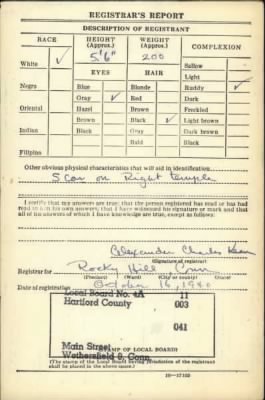 REGISTRAR'S REPORT
DESCRIPTION OF REGISTRANT
RACE HEIGHT (Approx.) WEIGHT (Approx.) COMPLEXION
5'6" 200
White ✓ Sallow
EYES HAIR Light
Negro Blue Blonde Ruddy ✓
Gray ✓ Red Dark
Oriental Hazel Brown Freckled
Brown Black ✓ Light brown
Indian Black Gray Dark brown
Bald Black
Filipino
Other obvious physical characteristics that will aid in identification
Scar on Right temple
I certify that my answers are true; that the person registered has read or has had
read to him his own answers; that I have witnessed his signature or mark and that
all of his answers of which I have knowledge are true, except as follows:
Alexander Charles
(Signature of registrar)
Registrar for Rocky Hill, Conn
(Precinct) (Ward) (City or county) (State)
Date of registration October 16, 1940
Local Board No. 4A 11
Hartford County 003
041
Main Street
(STAMP OF LOCAL BOARD)
Wethersfield 9, Conn.
(The stamp of the Local Board having jurisdiction of the registrant
shall be placed in the above space.)
16—17105